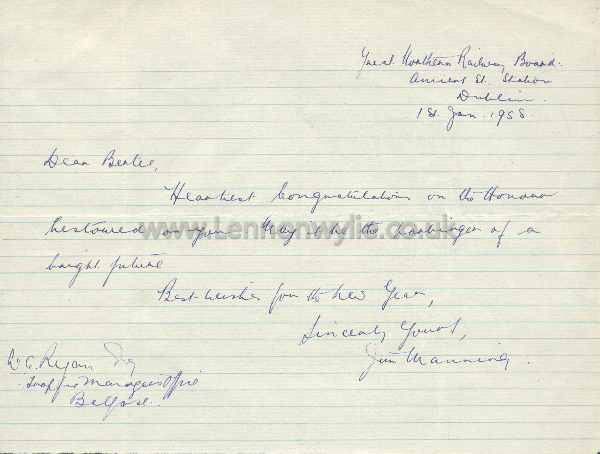 Great Northern Railway Board.
Amiens St. Station
Dublin.
1st. Jan. 1958.
Dear Bertie,
Heartiest Congratulations on the Honour
bestowed on you. May it be the harbinger of a
bright future
Best wishes for the New Year,
Sincerely Yours,
Jim Manning.
W. G. Regan Esq
Traffic Managers Office
Belfast.
www.Lennonwylie.co.uk